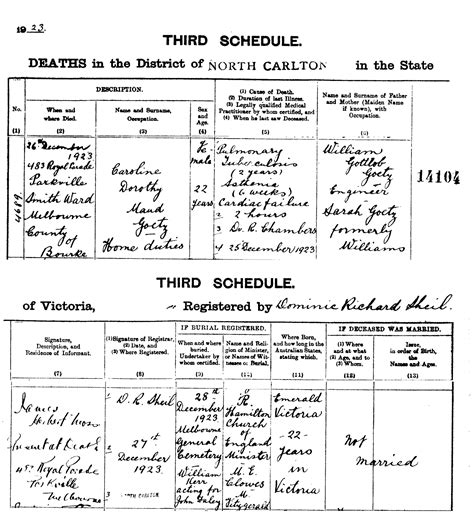 1923.
THIRD SCHEDULE.
DEATHS in the District of NORTH CARLTON in the State
DESCRIPTION.
No.
When and
where Died.
Name and Surname,
Occupation.
Sex
and
Age.
(1) Cause of Death.
(2) Duration of last Illness.
(3) Legally qualified Medical
Practitioner by whom certified, and
(4) When he last saw Deceased.
Name and Surname of Father
and Mother (Maiden Name
if known), with
Occupation.
(1)
(2)
(3)
(4)
(5)
(6)
4689
26th December
1923
483 Royal Parade
Parkville
Smith Ward
Melbourne
County
of
Bourke
Caroline
Dorothy
Maud
Goetz
Home duties
Fe
male
22
years
Pulmonary
Tuberculosis
(2 years)
Asthenia
(6 weeks)
Cardiac failure
2 2 hours
3 Dr. R. Chambers
4 25 December 1923
William
Gottlob
Goetz
Engineer
Sarah Goetz
formerly
Williams
14104
THIRD SCHEDULE.
of Victoria,
Registered by Dominic Richard Sheil.
Signature,
Description, and
Residence of Informant.
(1) Signature of Registrar,
(2) Date, and
(3) Where Registered.
IF BURIAL REGISTERED.
When and where
buried.
Undertaker by
whom certified.
Name and Reli-
gion of Minister,
or Names of Wit-
nesses of Burial.
Where Born,
and how long in the
Australian States,
stating which.
IF DECEASED WAS MARRIED.
(1) Where
and at what
(2) Age, and to
(3) Whom.
Issue,
in order of Birth,
the
Names and Ages.
(7)
(8)
(9)
(10)
(11)
(12)
(13)
James
Present at Death
Royal Parade
Parkville
Melbourne
D. R. Sheil
2 27th
December
1923.
3 NORTH CARLTON
28th
December
1923
Melbourne
General
Cemetery
William
Kerr
acting for
John Daley
R.
Hamilton
Church
of
England
Minister
M. E.
Clowes
M.
Fitzgerald
Emerald
Victoria
-22-
years
in
Victoria
Not
married